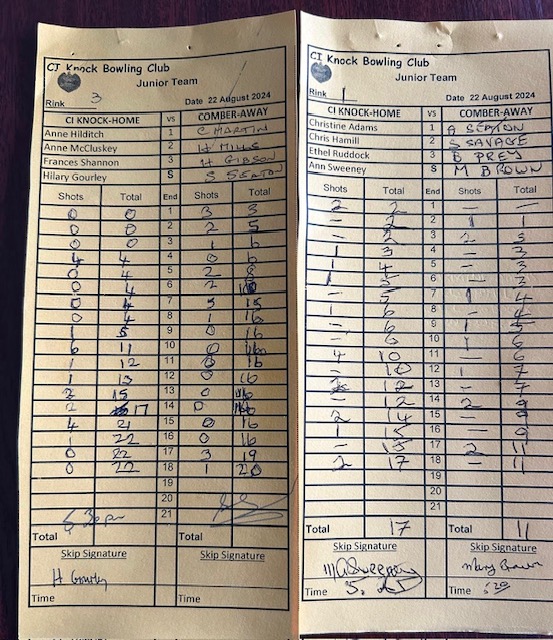 CI Knock Bowling Club
Junior Team
Rink 3 Date 22 August 2024
CI KNOCK-HOME VS COMBER-AWAY
Anne Hilditch 1 C MARTIN
Anne McCluskey 2 H MILLS
Frances Shannon 3 H GIBSON
Hilary Gourley S S SEATON
Shots Total End Shots Total
0 0 1 3 3
0 0 2 2 5
0 0 3 1 6
4 4 4 0 6
0 4 5 2 8
0 4 6 2
0 4 7 5 15
0 4 8 1 16
1 5 9 0 16
6 11 10 0 16
1 12 11 0 16
1 13 12 0 16
2 15 13 0 16
2 17 14 0 16
4 21 15 0 16
1 22 16 0 16
0 22 17 3 19
0 22 18 1 20
19
20
21
Total Total
Skip Signature Skip Signature
H Gourley
Time Time
CI Knock Bowling Club
Junior Team
Rink 1 Date 22 August 2024
CI KNOCK-HOME VS COMBER-AWAY
Christine Adams 1 A SEATON
Chris Hamill 2 S SAVAGE
Ethel Ruddock 3 B PREY
Ann Sweeney S M BROWN
Shots Total End Shots Total
2 2 1 — —
— 2 2 1 1
— 2 3 2 3
1 3 4 — 3
1 4 5 — 3
1 5 6 — 3
— 5 7 1 4
1 6 8 — 4
— 6 9 1 5
— 6 10 1 6
4 10 11 — 6
— 10 12 1 7
2 12 13 — 7
— 12 14 2 9
2 14 15 — 9
1 15 16 — 9
— 15 17 2 11
2 17 18 — 11
19
20
21
Total 17 Total 11
Skip Signature Skip Signature
Mary Brown
Time Time